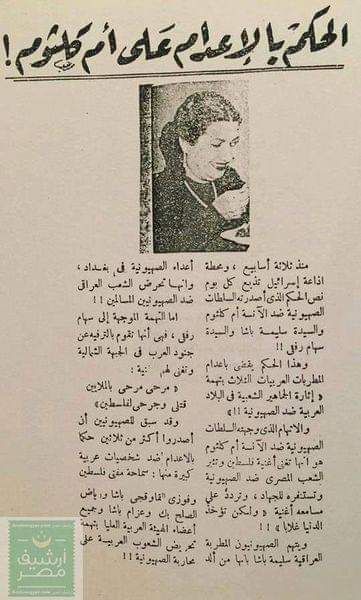 الحكم بالإعدام على أم كلثوم !
منذ ثلاثة أسابيع ، ومحطة
اذاعة إسرائيل تذيع كل يوم
نص الحكم الذى أصدرته السلطات
الصهيونية ضد الآنسة أم كلثوم
والسيدة سليمة باشا والسيدة
سهام رفقى !!
وهذا الحكم يقضى بإعدام
المطربات العربيات الثلاث بتهمة
« إثارة الجماهير الشعبية فى البلاد
العربية ضد الصهيونية !! »
والاتهام الذى وجهته السلطات
الصهيونية ضد الآنسة أم كلثوم
هو أنها تغنى أغنية فلسطين وتثير
الشعب المصرى ضد الصهيونية
وتستنفره للجهاد ، وتردد على
مسامعه أغنية « ولكن تؤخذ
الدنيا غلابا » !!
ويتهم الصهيونيون المطربة
العراقية سليمة باشا بانها من ألد
أعداء الصهيونية فى بغداد ،
وانها تحرض الشعب العراقى
ضد الصهيونيين المسالمين !!
اما التهمة الموجهة إلى سهام
رفقى ، فهى أنها تقوم بالترفيه عن
جنود العرب فى الجبهة الشمالية
وتغنى لهم
« مرحى مرحى بالملايين
قتلى وجرحى لفلسطين »
وقد سبق للصهيونيين أن
أصدروا أكثر من ثلاثين حكما
بالاعدام ضد شخصيات عربية
كبيرة منها : سماحة مفتى فلسطين
وفوزى القاوقجى باشا ورياض
الصلح بك وعزام باشا وجميع
أعضاء الهيئة العربية العليا بتهمة
تحريض الشعوب العربية على
محاربة الصهيونية !!
أرشيف
مصر